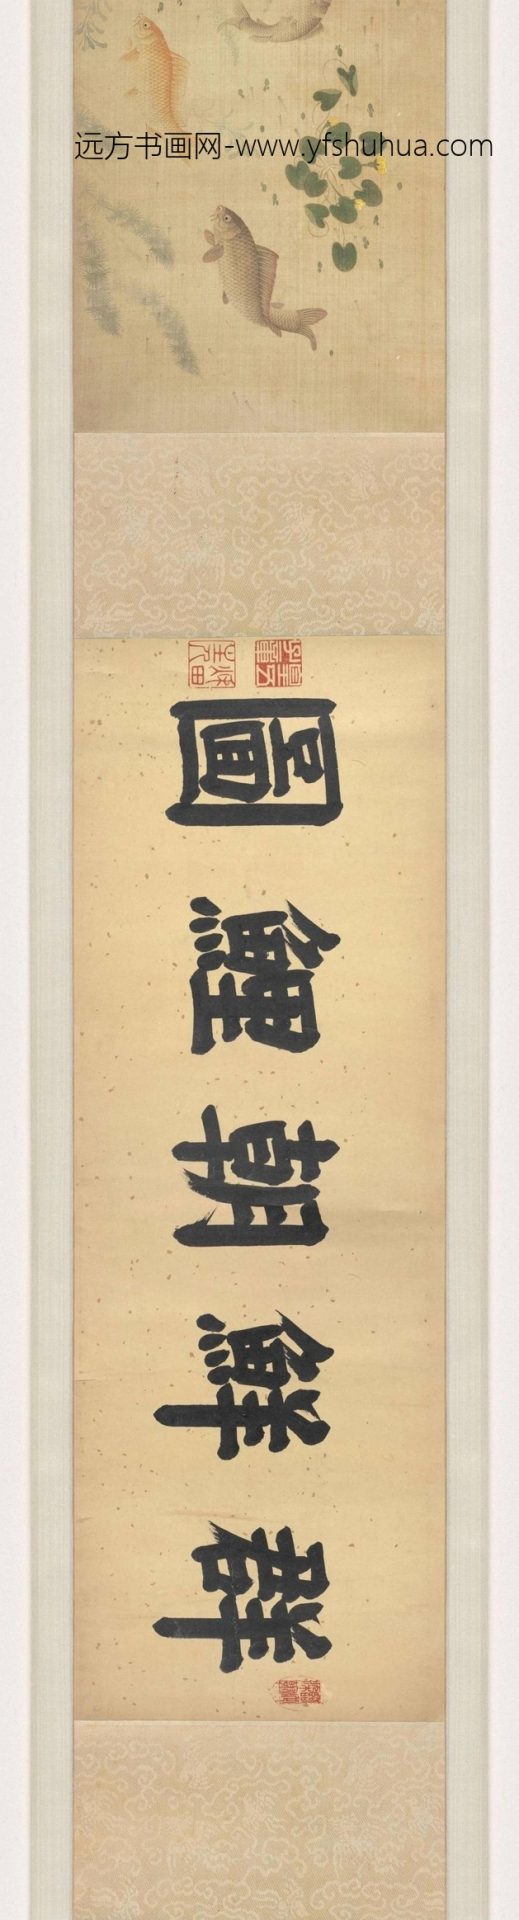 远方书画网-www.yfshuhua.com
群鮮朝鯉圖